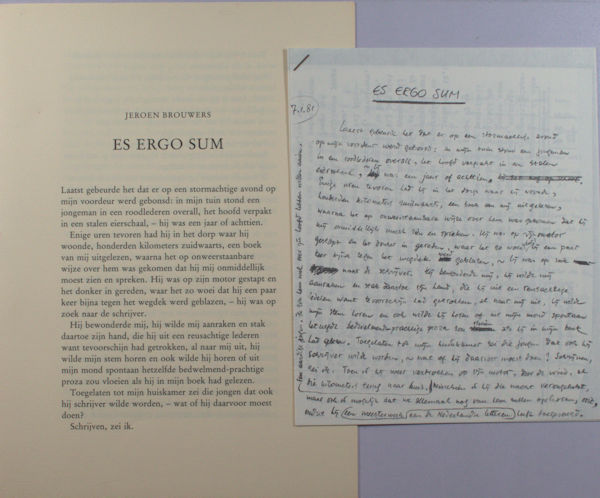 JEROEN BROUWERS
ES ERGO SUM
Laatst gebeurde het dat er op een stormachtige avond op
mijn voordeur werd gebonsd: in mijn tuin stond een
jongeman in een roodlederen overall, het hoofd verpakt
in een stalen eierschaal, – hij was een jaar of achttien.
Enige uren tevoren had hij in het dorp waar hij
woonde, honderden kilometers zuidwaarts, een boek
van mij uitgelezen, waarna het op onweerstaanbare
wijze over hem was gekomen dat hij mij onmiddellijk
moest zien en spreken. Hij was op zijn motor gestapt en
het donker in gereden, waar het zo woei dat hij een paar
keer bijna tegen het wegdek werd geblazen, – hij was op
zoek naar de schrijver.
Hij bewonderde mij, hij wilde mij aanraken en stak
daartoe zijn hand, die hij uit een reusachtige lederen
want tevoorschijn had getrokken, al naar mij uit, hij
wilde mijn stem horen en ook wilde hij horen of uit
mijn mond spontaan hetzelfde bedwelmend-prachtige
proza zou vloeien als hij in mijn boek had gelezen.
Toegelaten tot mijn huiskamer zei die jongen dat ook
hij schrijver wilde worden, – wat of hij daarvoor moest
doen?
Schrijven, zei ik.
ES ERGO SUM
7.1.81
Laatst gebeurde het dat er op een stormachtige avond
op mijn voordeur werd gebonsd: in mijn tuin stond een jongeman
in een roodlederen overall, het hoofd verpakt in een stalen
eierschaal, – hij was een jaar of achttien
Enige uren tevoren had hij in het dorp waar hij woonde,
honderden kilometers zuidwaarts, een boek van mij uitgelezen,
waarna het op onweerstaanbare wijze over hem was gekomen dat hij
mij onmiddellijk moest zien en spreken. Hij was op zijn motor
gestapt en het donker in gereden, waar het zo woei dat hij een paar
keer bijna tegen het wegdek werd geblazen, – hij was op zoek
naar de schrijver. Hij bewonderde mij, hij wilde mij
aanraken en stak daartoe zijn hand, die hij uit een reusachtige
lederen want tevoorschijn had getrokken, al naar mij uit, hij wilde
mijn stem horen en ook wilde hij horen of uit mijn mond spontaan
hetzelfde bedwelmend-prachtige proza zou vloeien als hij in mijn boek
had gelezen. Toegelaten tot mijn huiskamer zei die jongen dat ook hij
schrijver wilde worden, – wat of hij daarvoor moest doen? Schrijven,
zei ik. Toen is hij weer vertrokken op zijn motor, door de wind, al
die kilometers terug naar huis. Misschien is hij die nacht verongelukt,
maar ook is mogelijk dat we allemaal nog van hem zullen opkijken, ooit,
omdat hij een meesterwerk aan de Nederlandse letteren heeft toegevoegd.